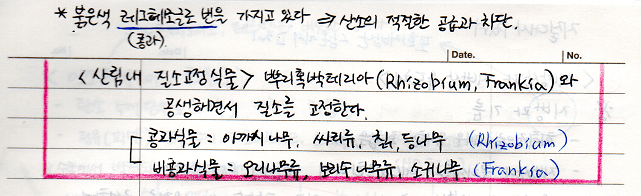 * 붉은색 레그헤모글로빈을 가지고 있다 ⇒ 산소의 적절한 공급과 차단.
(콩과)
Date. No.
<산림내 질소고정식물> 뿌리혹박테리아(Rhizobium, Frankia)와
공생하면서 질소를 고정한다.
콩과식물 : 아까시나무, 싸리류, 칡, 등나무 (Rhizobium)
비콩과식물 : 오리나무류, 보리수나무류, 소귀나무 (Frankia)